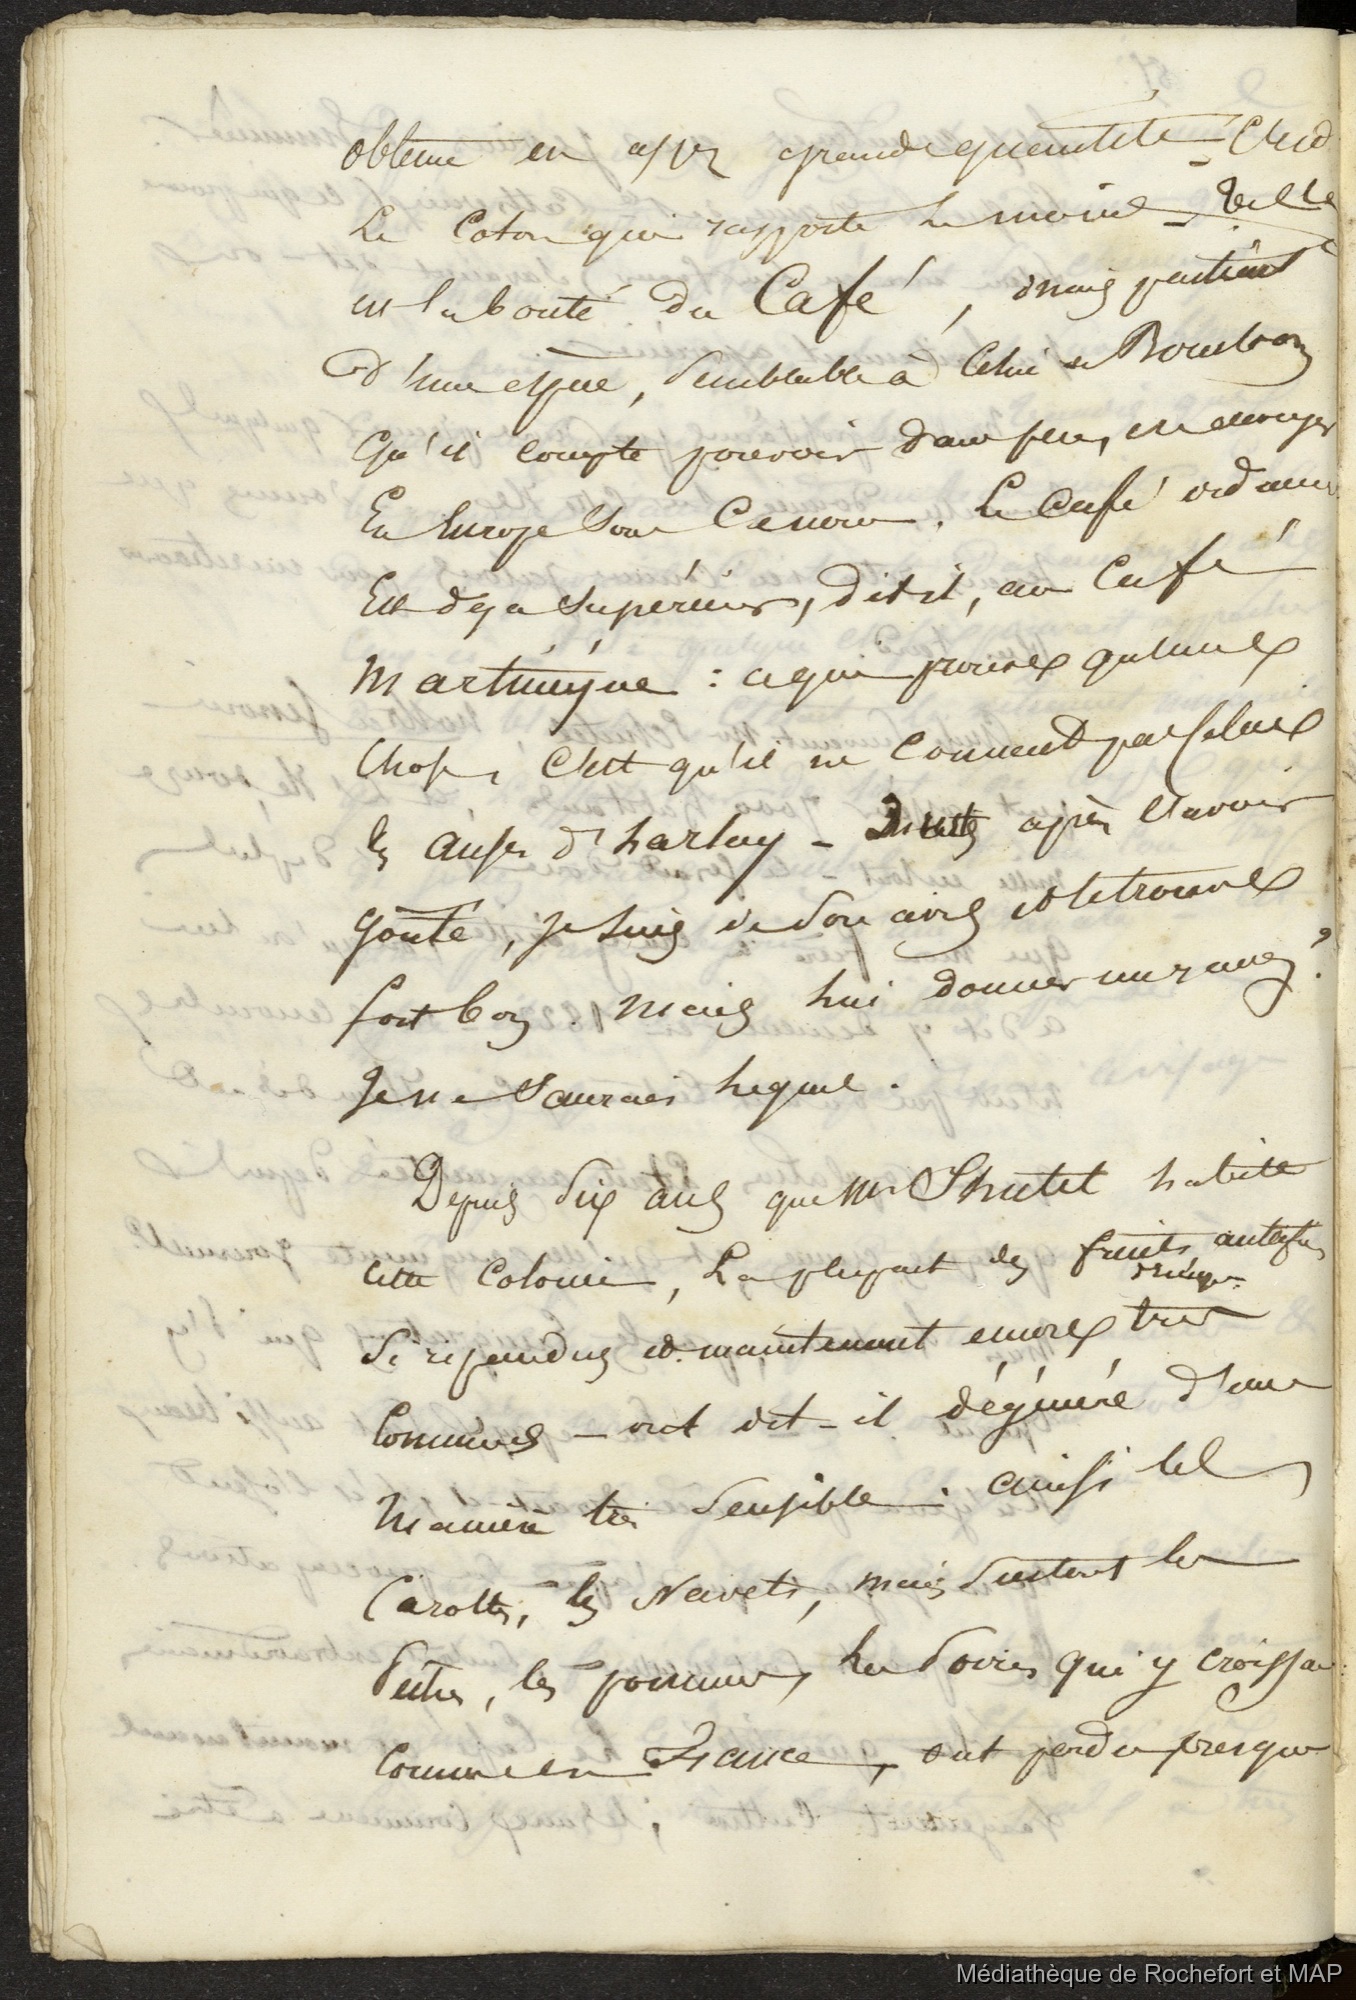 obtenue en assez grande quantité = C'est
Le Coton qui rapporte le moins =
est la bonté du Café, mais surtout
d'une espèce, semblable à Celui de Bourbon
qu'il compte pouvoir dans peu, en envoyer
En Europe Sous Canon. Le Café ordinaire
Est deja supérieur, dit il, au Café
Martinique : ce qui prouve quelque
Chose, C'est qu'il ne Connaet pas celui
des anses d'harlay - après l'avoir
gouté, je suis de son avis et le trouve
fort bon. Mais lui donner un rang?
Je ne Saurais lequel.
Depuis dix ans que Mr habite
cette Colonie, La plupart des fruits autrefois
si répandus et maintenant encore très
Communs - ont dit-il dégénéré d'une
Manière très sensible : ainsi les
Carottes, les Navets, mais surtout les
les pommes, les Poires qui y croissai
Comme en France, ont perdu presque
Médiathèque de Rochefort et MAP